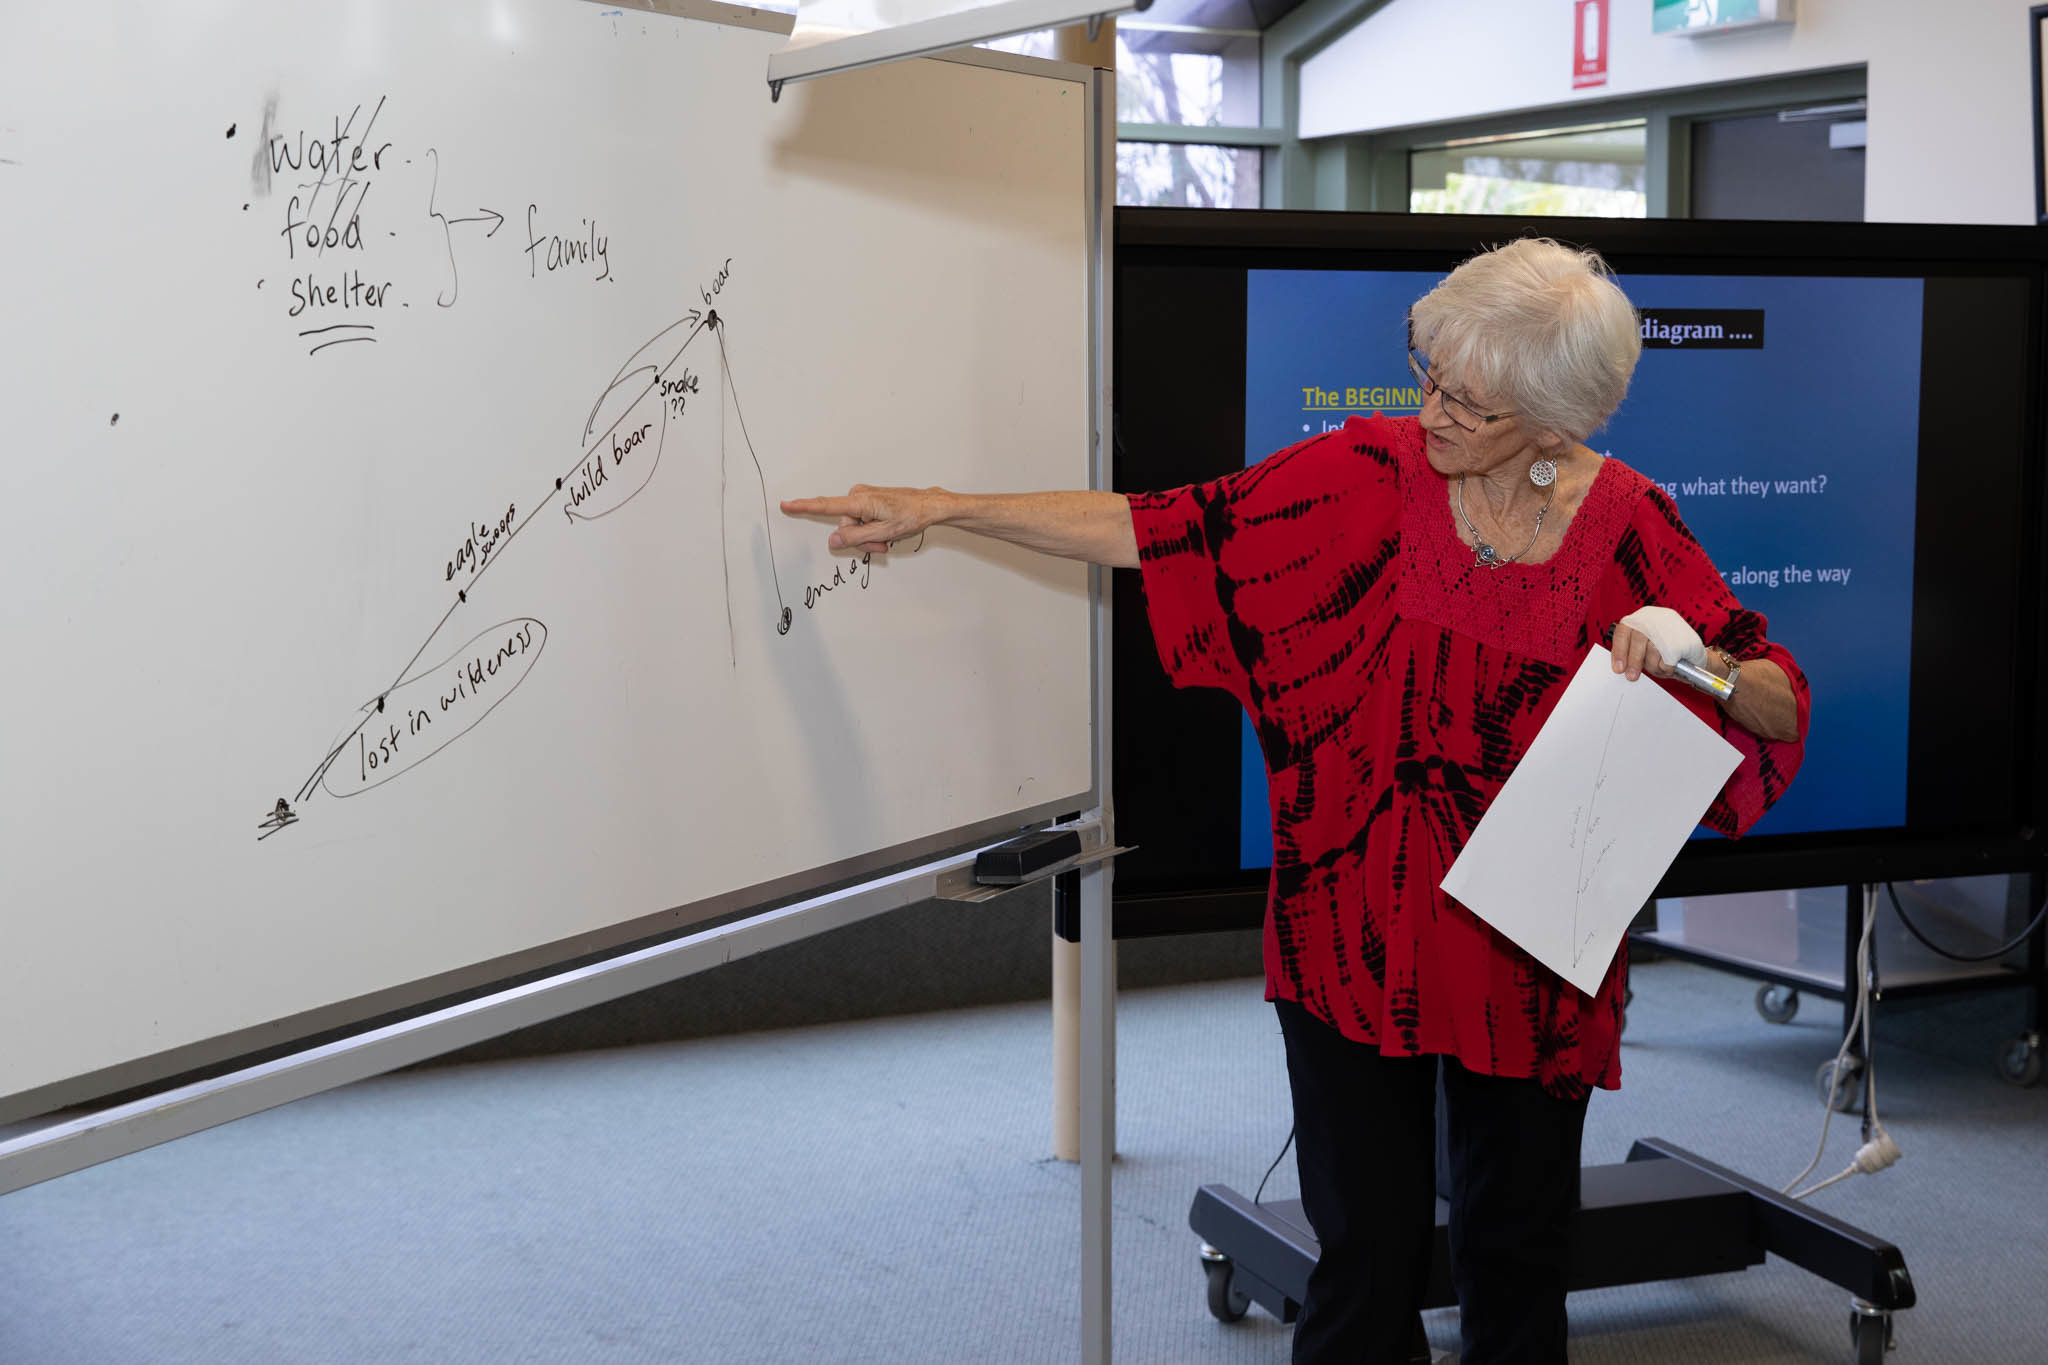 water.
food.
shelter.
family.
boar
snake
??
wild boar
eagle
swoops
lost in wildeness
diagram ....
The BEGINN
what they want?
along the way